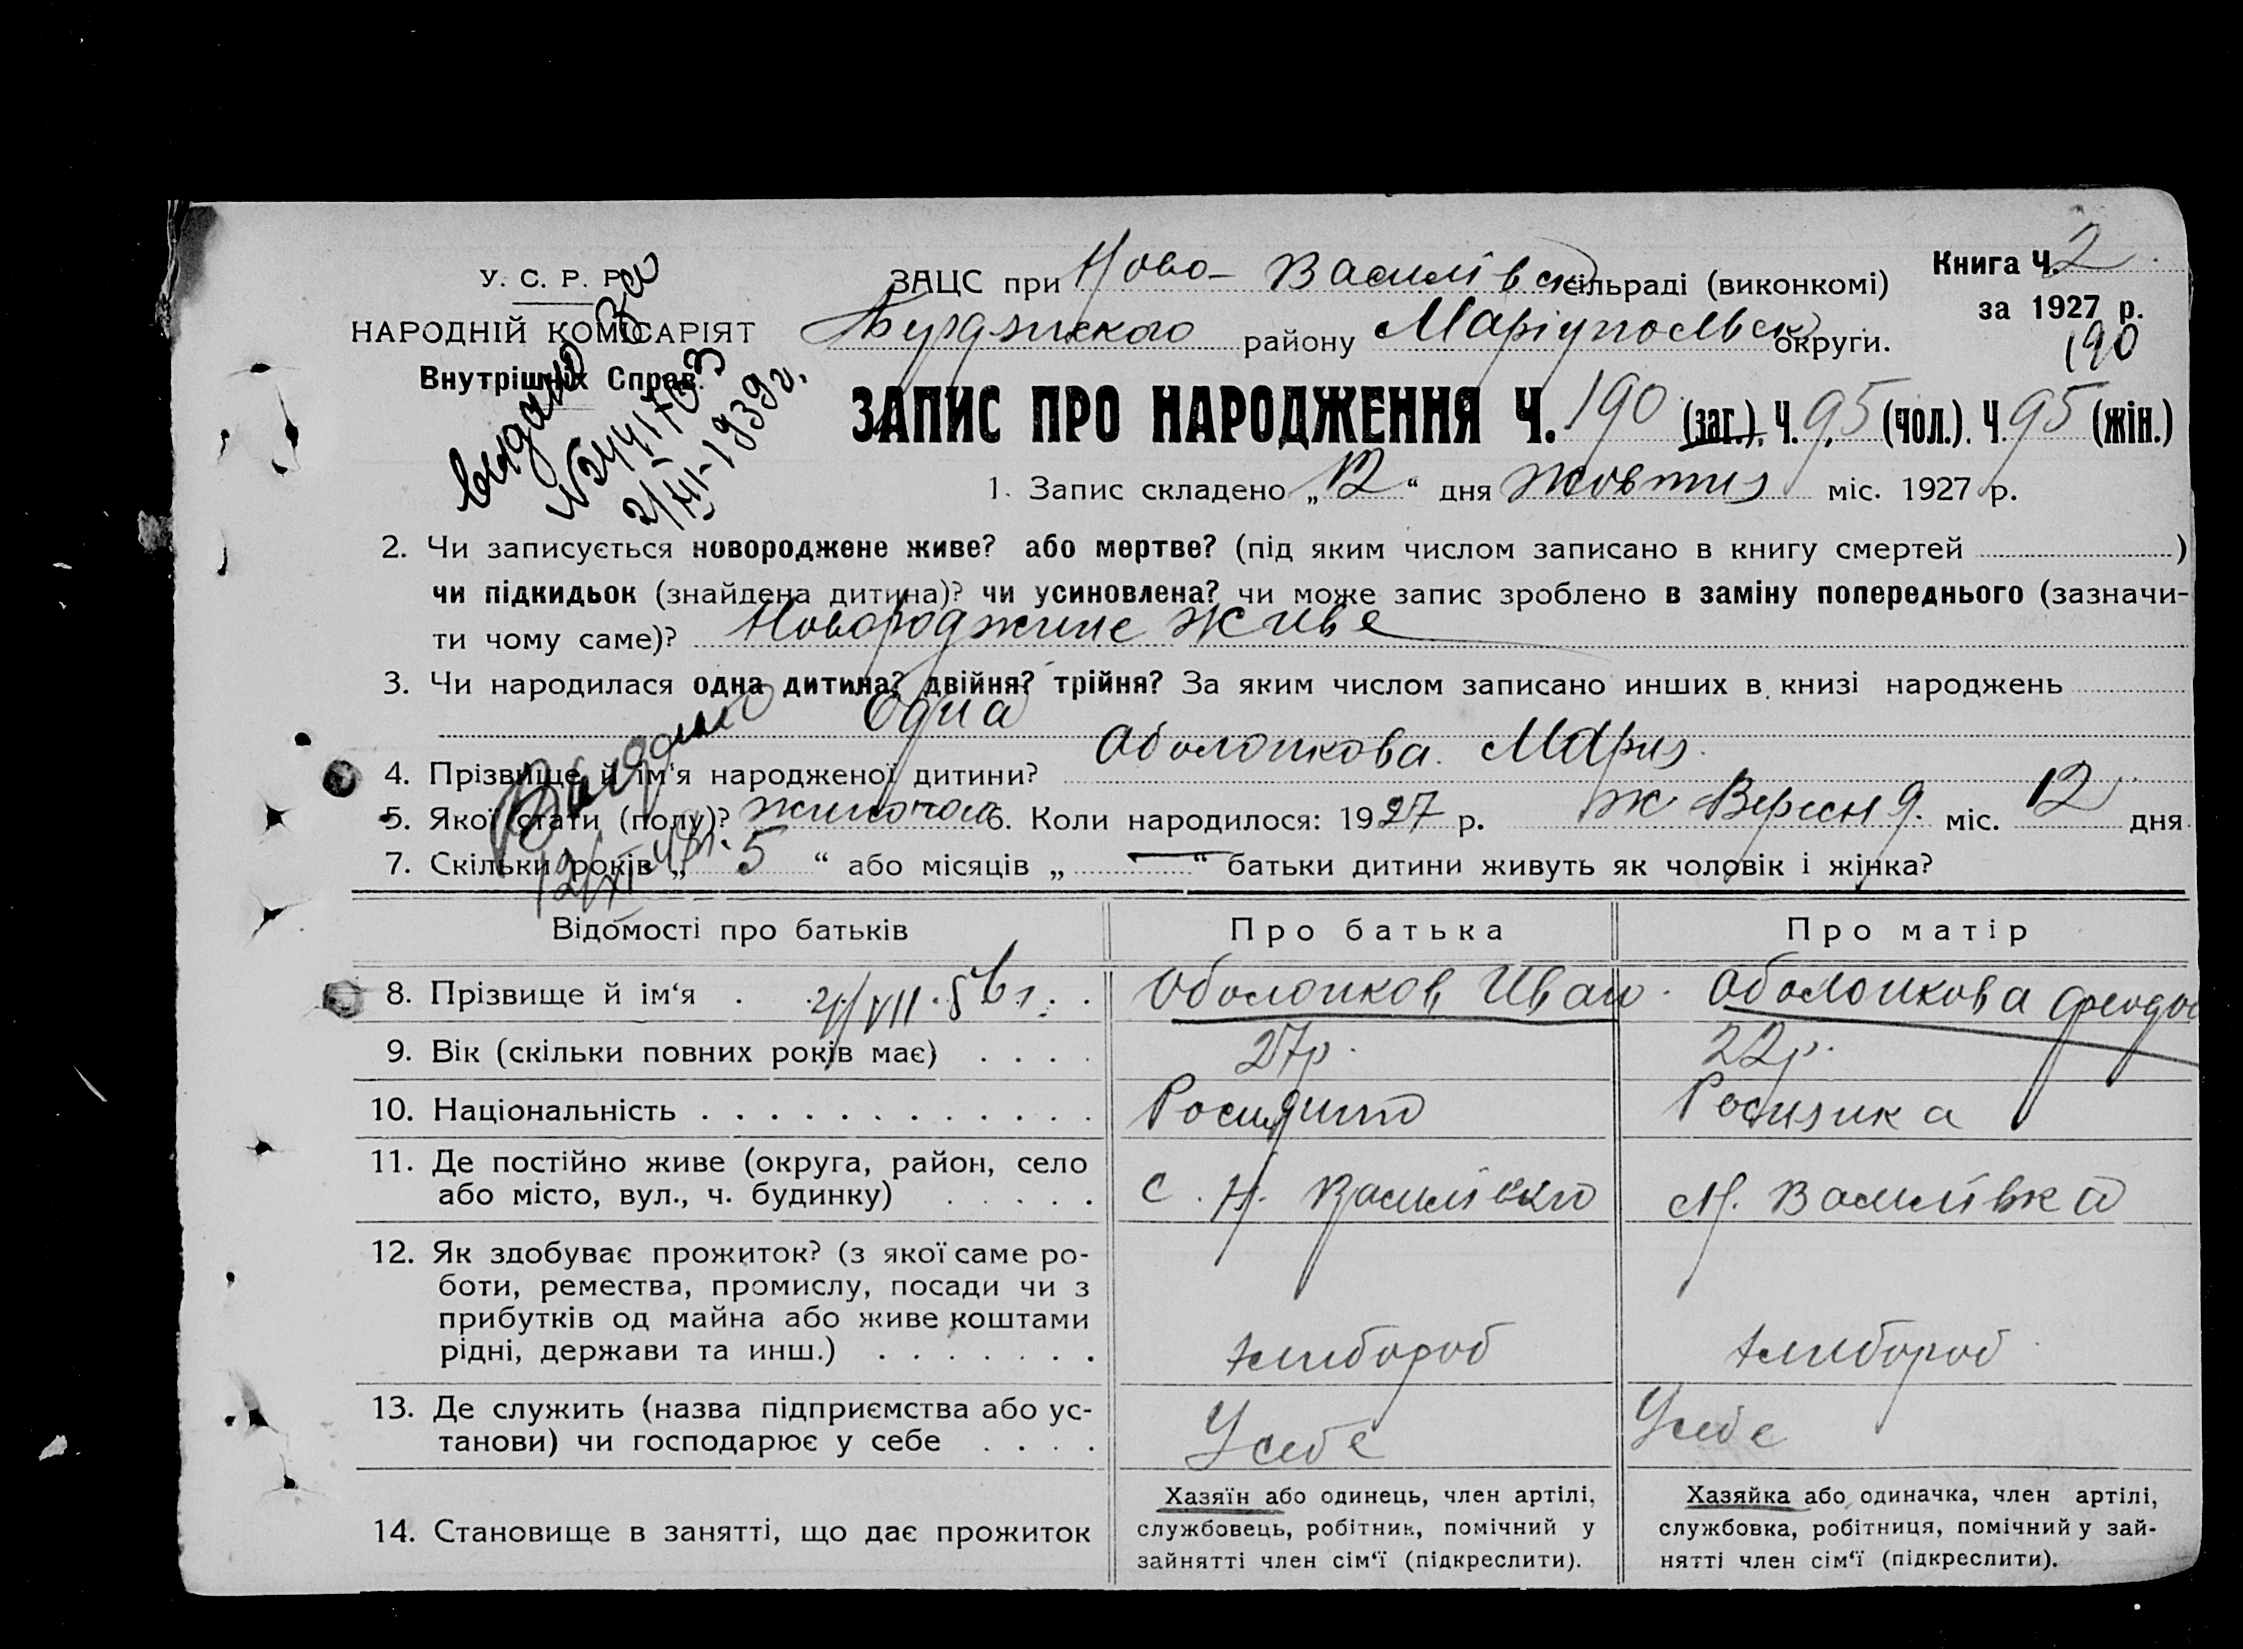 У. С. Р. Р.
НАРОДНІЙ КОМІСАРІЯТ
Внутрішніх Справ.
видано
2/III-1939г.
ЗАЦС при Ново-Василівс сільраді (виконкомі)
району Маріупольск округи.
Книга Ч. 2
за 1927 р.
190
ЗАПИС ПРО НАРОДЖЕННЯ Ч. 190 (заг.), Ч. 95 (чол.). Ч. 95 (жін.)
1. Запис складено „12“ дня жовтня міс. 1927 р.
2. Чи записується новороджене живе? або мертве? (під яким числом записано в книгу смертей )
чи підкидьок (знайдена дитина)? чи усиновлена? чи може запис зроблено в заміну попереднього (зазначи-
ти чому саме)? Новороджине живе
3. Чи народилася одна дитина? двійня? трійня? За яким числом записано инших в книзі народжень
Одна
4. Прізвище й ім‘я народженої дитини? Оболонкова Мария
5. Якої стати (полу)? 6. Коли народилося: 1927 р. ж Вересня міс. 12 дня
7. Скільки років „ 5 “ або місяців „ — “ батьки дитини живуть як чоловік і жінка?
Відомості про батьків
Про батька
Про матір
8. Прізвище й ім‘я
Оболонков Иван
Оболонкова
9. Вік (скільки повних років має)
27р.
22р.
10. Національність
11. Де постійно живе (округа, район, село
або місто, вул., ч. будинку)
с. Н. Василівка
Н. Василівка
12. Як здобуває прожиток? (з якої саме ро-
боти, ремества, промислу, посади чи з
прибутків од майна або живе коштами
рідні, держави та инш.)
хлибороб
хлибороб
13. Де служить (назва підприємства або ус-
танови) чи господарює у себе
У себе
У себе
14. Становище в занятті, що дає прожиток
Хазяїн або одинець, член артілі,
службовець, робітник, помічний у
зайнятті член сім‘ї (підкреслити).
Хазяйка або одиначка, член артілі,
службовка, робітниця, помічний у зай-
нятті член сім‘ї (підкреслити).